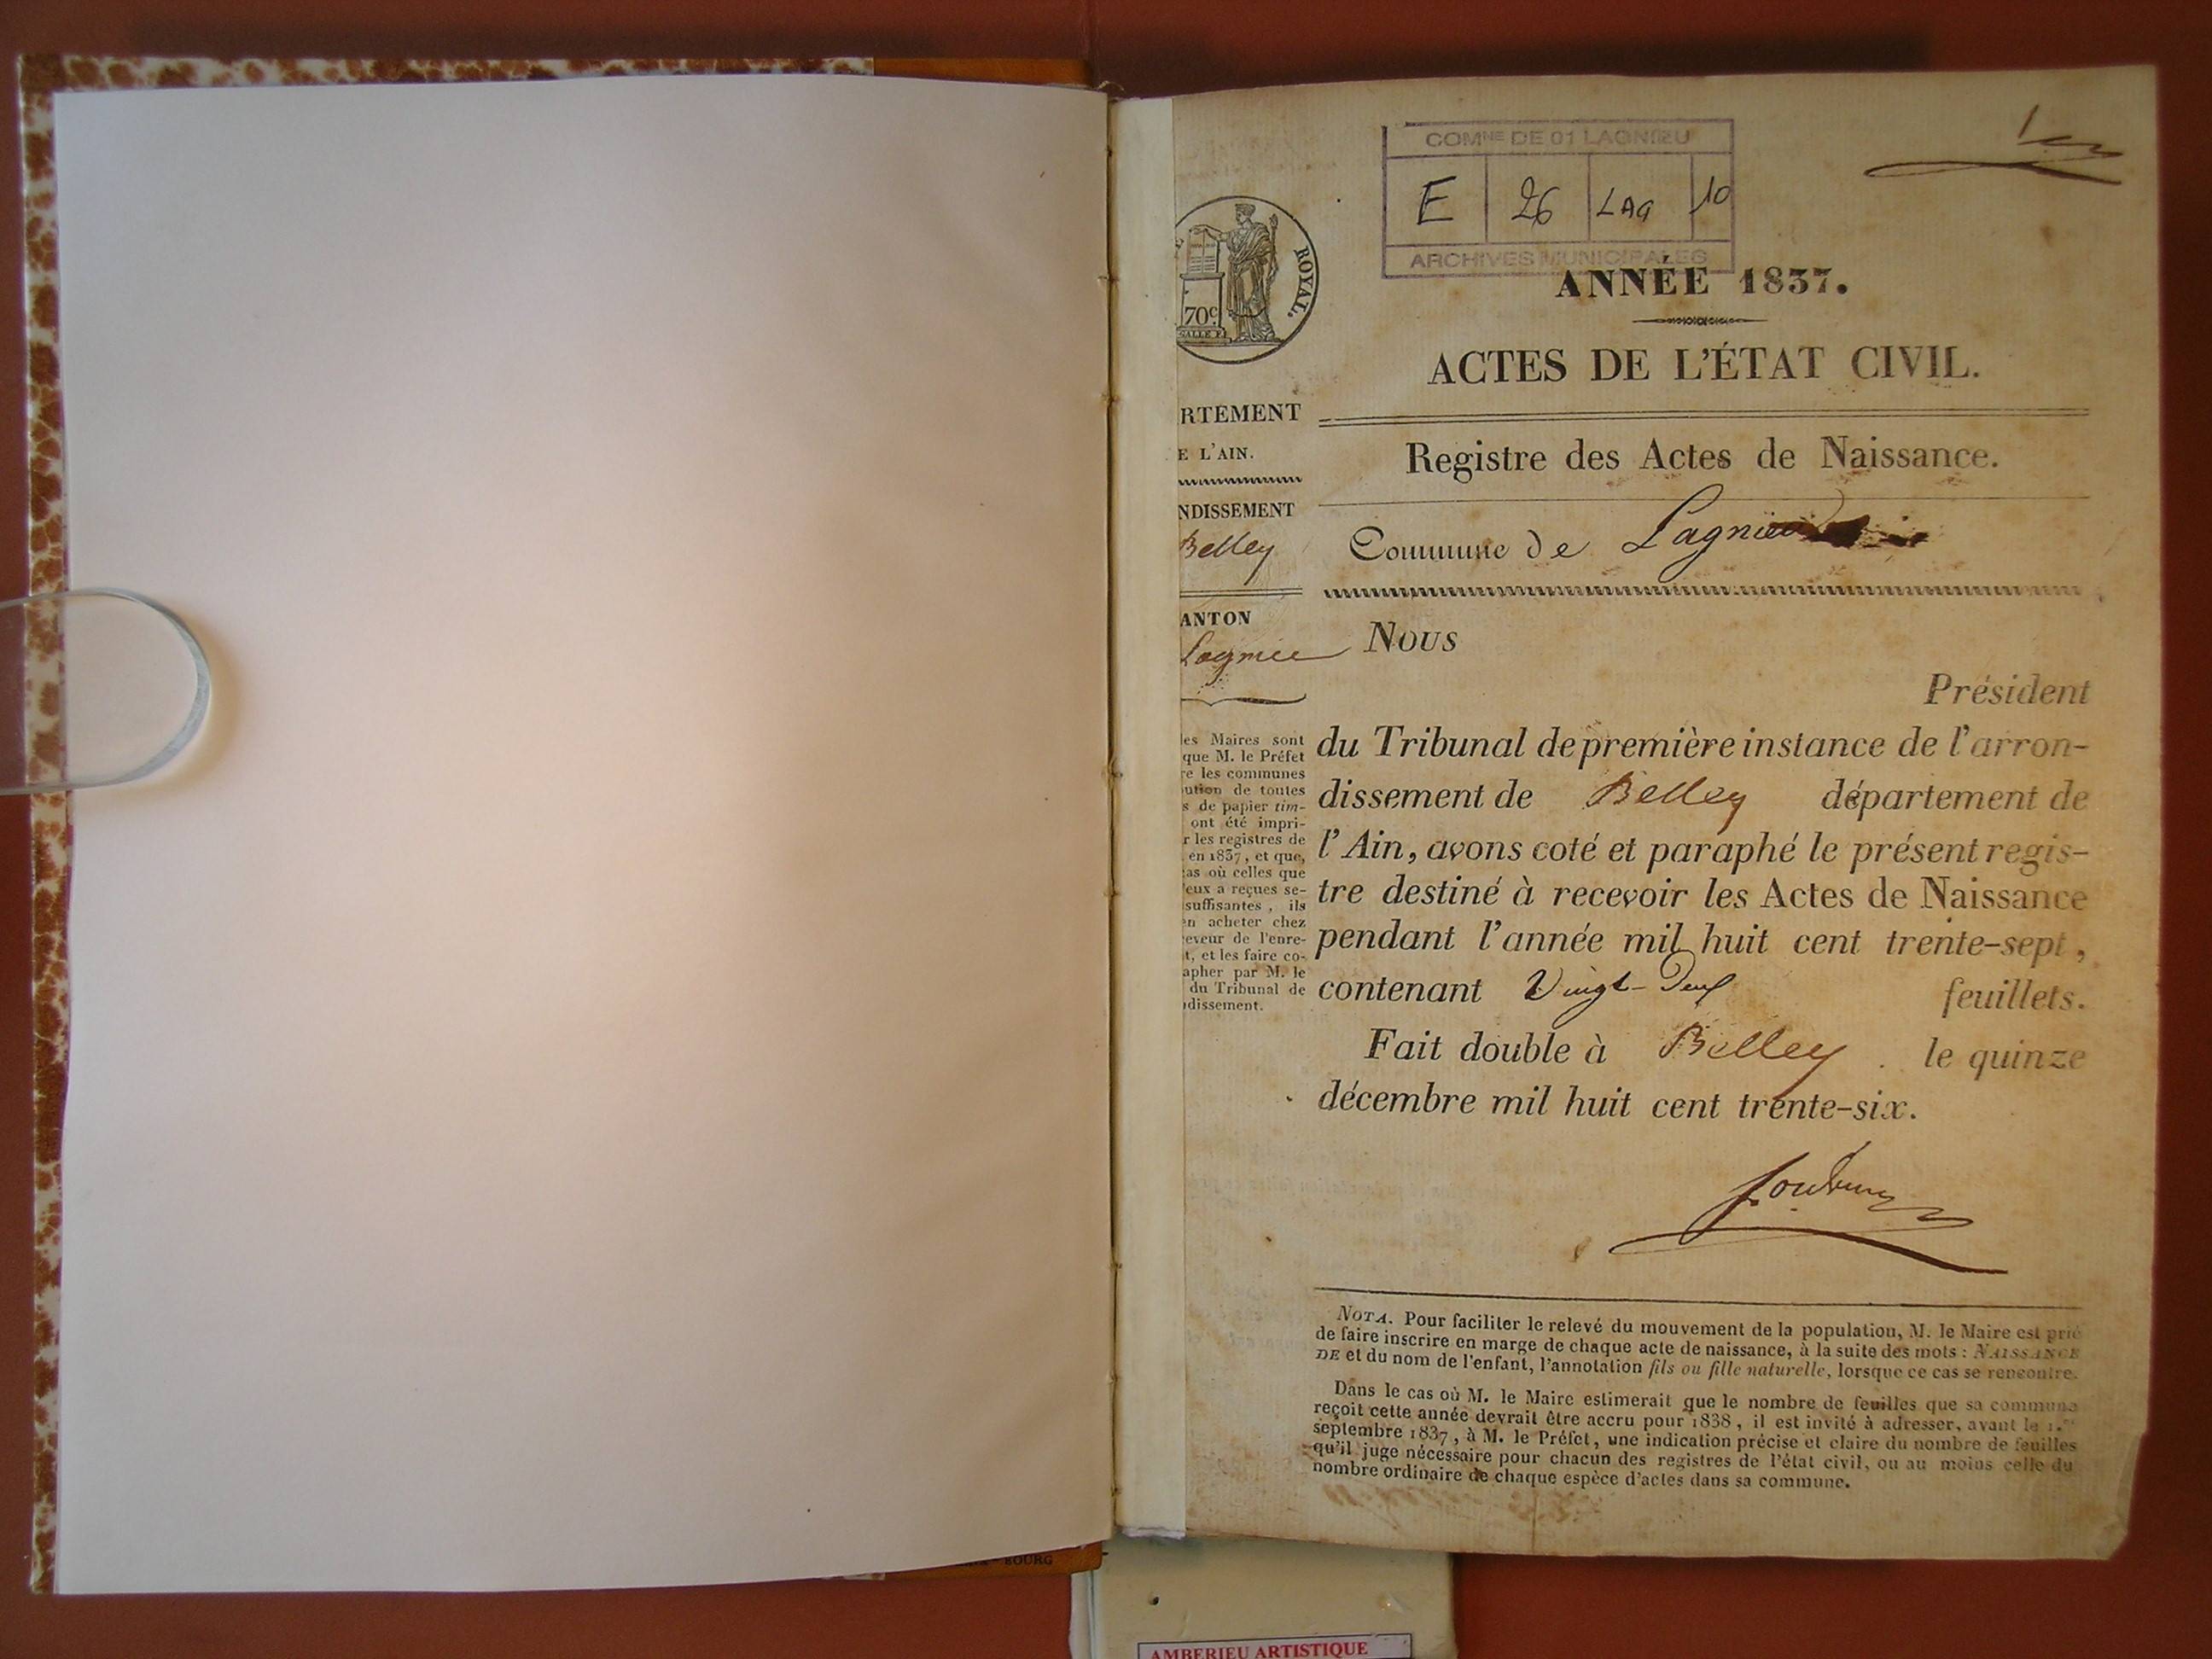 1er
COMNE DE 01 LAGNIEU
E 26 LAG 10
ARCHIVES MUNICIPALES
ROYAL.
70c
ANNÉE 1837.
ACTES DE L'ÉTAT CIVIL.
RTEMENT
E L'AIN.
NDISSEMENT
Belley
ANTON
Lagnieu
les Maires sont
que M. le Préfet
re les communes
ution de toutes
s de papier tim-
ont été impri-
r les registres de
en 1837, et que,
as où celles que
'eux a reçues se-
suffisantes, ils
en acheter chez
eveur de l'enre-
t, et les faire co-
apher par M. le
du Tribunal de
dissement.
Registre des Actes de Naissance.
Commune de Lagnieu
Nous
Président
du Tribunal de première instance de l'arron-
dissement de Belley département de
l'Ain, avons coté et paraphé le présent regis-
tre destiné à recevoir les Actes de Naissance
pendant l'année mil huit cent trente-sept,
contenant Vingt-Deux feuillets.
Fait double à Belley . le quinze
décembre mil huit cent trente-six.
NOTA. Pour faciliter le relevé du mouvement de la population, M. le Maire est prié
de faire inscrire en marge de chaque acte de naissance, à la suite des mots : NAISSANCE
DE et du nom de l'enfant, l'annotation fils ou fille naturelle, lorsque ce cas se rencontre.
Dans le cas où M. le Maire estimerait que le nombre de feuilles que sa commune
reçoit cette année devrait être accru pour 1838, il est invité à adresser, avant le 1.er
septembre 1837, à M. le Préfet, une indication précise et claire du nombre de feuilles
qu'il juge nécessaire pour chacun des registres de l'état civil, ou au moins celle du
nombre ordinaire de chaque espèce d'actes dans sa commune.
BOURG
AMBERIEU ARTISTIQUE